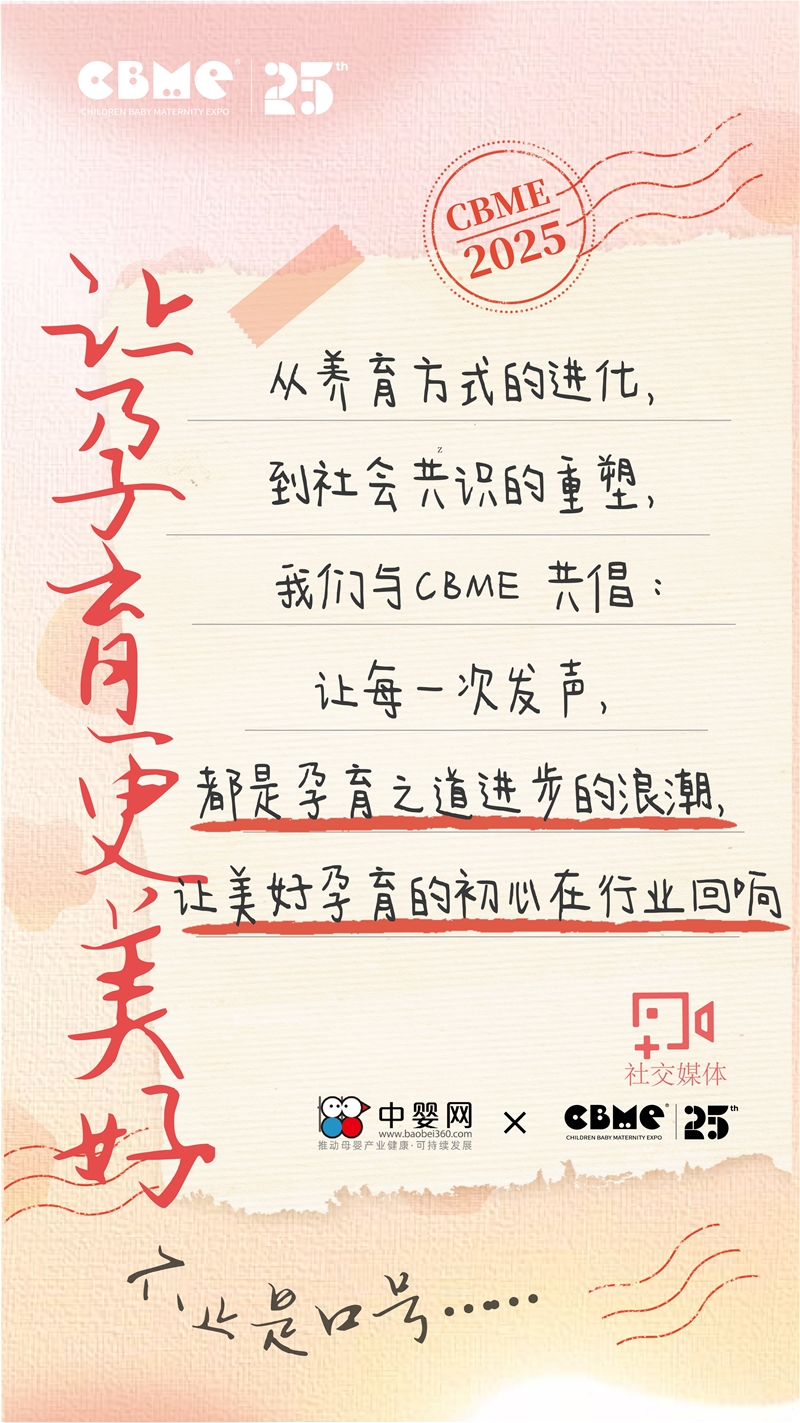 CBME® 25th
CHILDREN BABY MATERNITY EXPO
CBME
2025
让孕育更美好
从养育方式的进化,
到社会共识的重塑,
z
我们与CBME 共倡：
让每一次发声,
都是孕育之道进步的浪潮,
让美好孕育的初心在行业回响
社交媒体
中婴网
www.baobei360.com
推动母婴产业健康·可持续发展
×
CBME® 25th
CHILDREN BABY MATERNITY EXPO
不止是口号……